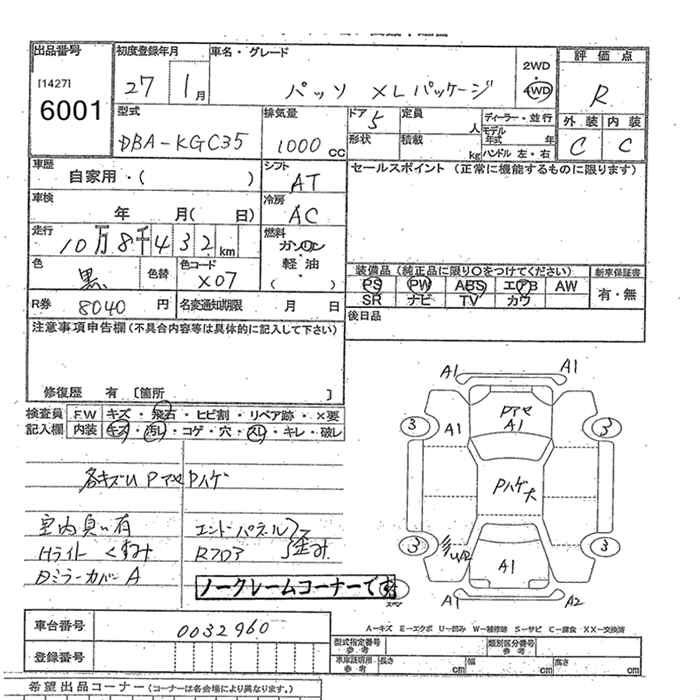 出品番号 初度登録年月 車名・グレード 2WD・4WD 評価点
[1427] 27 1月 パッソ XLパッケージ R
6001 型式 排気量 ドア 定員 人 ディーラー・並行 外装 内装
DBA-KGC35 1000cc 5 形状 積載 kg モデル年式 年 ハンドル 左・右 C C
車歴 自家用・( ) シフト AT セールスポイント (正常に機能するものに限ります)
車検 年 月( 日) 冷房 AC
走行 10万8千432km 燃料 ガソリン・軽油・( )
色 黒 色替 色コード X07 装備品(純正品に限り○をつけてください) 新車保証書
PS PW ABS エアB AW 有・無
SR ナビ TV カワ
R券 8040円 名変通知期限 月 日 後日品
注意事項申告欄(不具合内容等は具体的に記入して下さい)
修復歴 有 [箇所 ]
検査員 F.W キズ・飛石・ヒビ割・リペア跡・×要
記入欄 内装 キズ・汚れ・コゲ・穴・スレ・キレ・破レ
各キズU Pアセ Pハゲ
室内臭い有 エンドパネル
Hライト くすみ Rフロア 歪み
Dミラーカバー A
ノークレームコーナーです
A1 A1
A1 Pアセ A1
3 3
Pハゲ大
3 3
UR
A1
A1 A2
A-キズ E-エクボ U-凹み W-補修跡 S-サビ C-腐食 XX-交換済
車台番号 0032960 型式指定番号 参考 類別区分番号 参考
登録番号 車庫証明用 参考 長さ cm 幅 cm 高さ cm
希望出品コーナー(コーナーは各会場により異なります。)